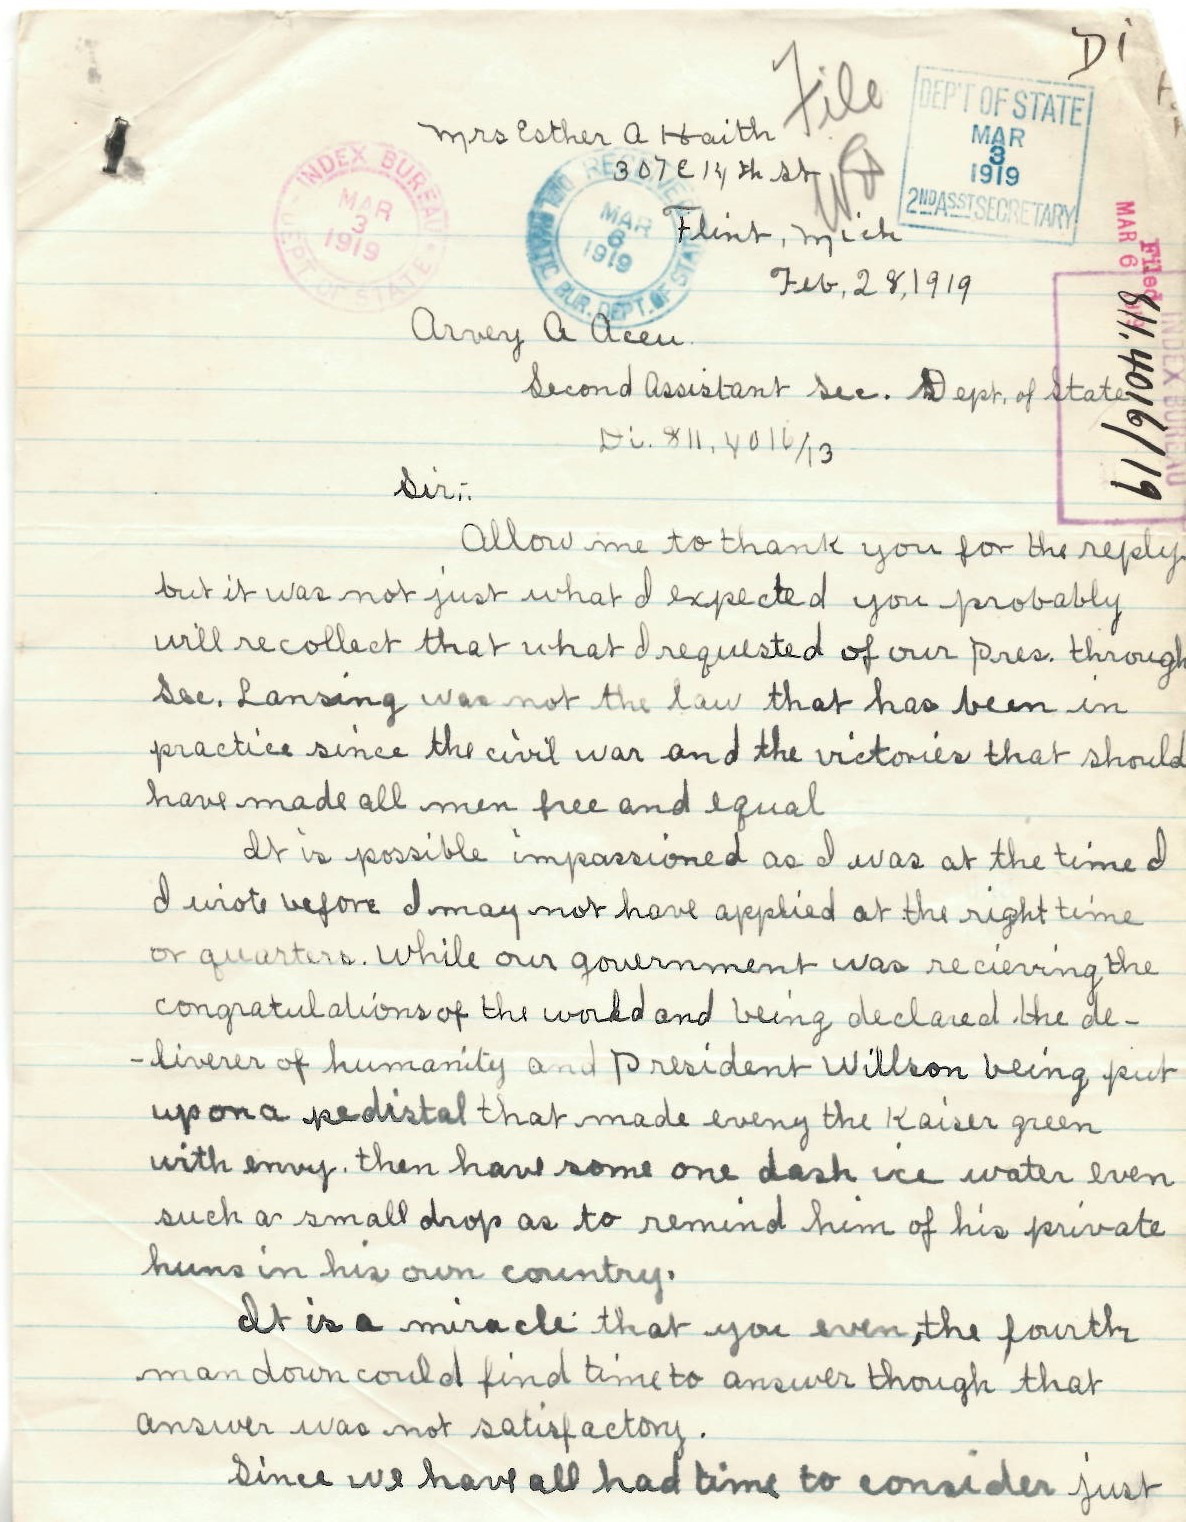 Di
File
DEP'T OF STATE
MAR
3
1919
2ND ASST SECRETARY
Mrs Esther A Haith
307 E 14th St
Flint, Mich
Feb, 28, 1919
INDEX BUREAU
MAR
3
1919
DEPT OF STATE
RECEIVED
MAR
6
1919
DIPLOMATIC BUR. DEPT. OF STATE
Filed
MAR 6
INDEX BUREAU
811.4016/19
Arvey A Aceu
Second Assistant Sec. Dept. of State
Di. 811.4016/13
Sir:-
Allow me to thank you for the reply
but it was not just what I expected you probably
will recollect that what I requested of our Pres. through
Sec. Lansing was not the law that has been in
practice since the civil war and the victories that should
have made all men free and equal
It is possible impassioned as I was at the time I
I wrote before I may not have applied at the right time
or quarters. While our government was recieving the
congratulations of the world and being declared the de-
-liverer of humanity and President Willson being put
upon a pedistal that made eveny the Kaiser green
with envy. then have some one dash ice water even
such a small drop as to remind him of his private
huns in his own country.
It is a miracle that you even, the fourth
man down could find time to answer though that
answer was not satisfactory.
Since we have all had time to consider just